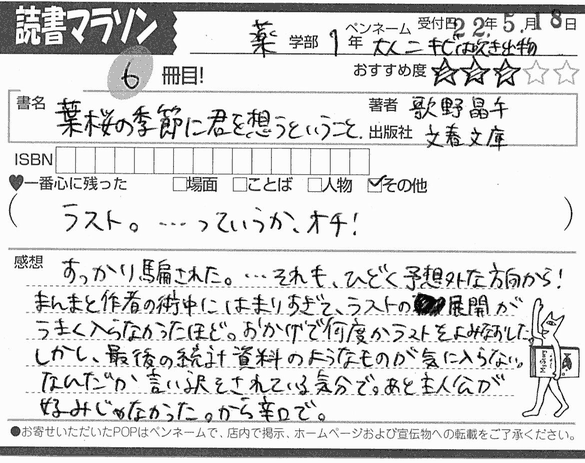 読書マラソン
薬 学部 1年 ペンネーム 大人ニキビは吹き出物 受付日 22年5月18日
6 冊目! おすすめ度 ★★★☆☆
書名 葉桜の季節に君を想うということ 著者 歌野晶午
出版社 文春文庫
ISBN
♥一番心に残った □場面 □ことば □人物 ☑その他
(ラスト。…っていうか、オチ!)
感想 すっかり騙された。…それも、ひどく予想外な方向から!
まんまと作者の術中にはまりすぎて、ラストの展開が
うまく入らなかったほど。おかげで何度かラストをよみなおした。
しかし、最後の統計資料のようなものが気に入らない。
なんだか言い訳をされている気分で。あと主人公が
好みじゃなかった。から辛口で。
●お寄せいただいたPOPはペンネームで、店内で掲示、ホームページおよび宣伝物への転載をご了承ください。